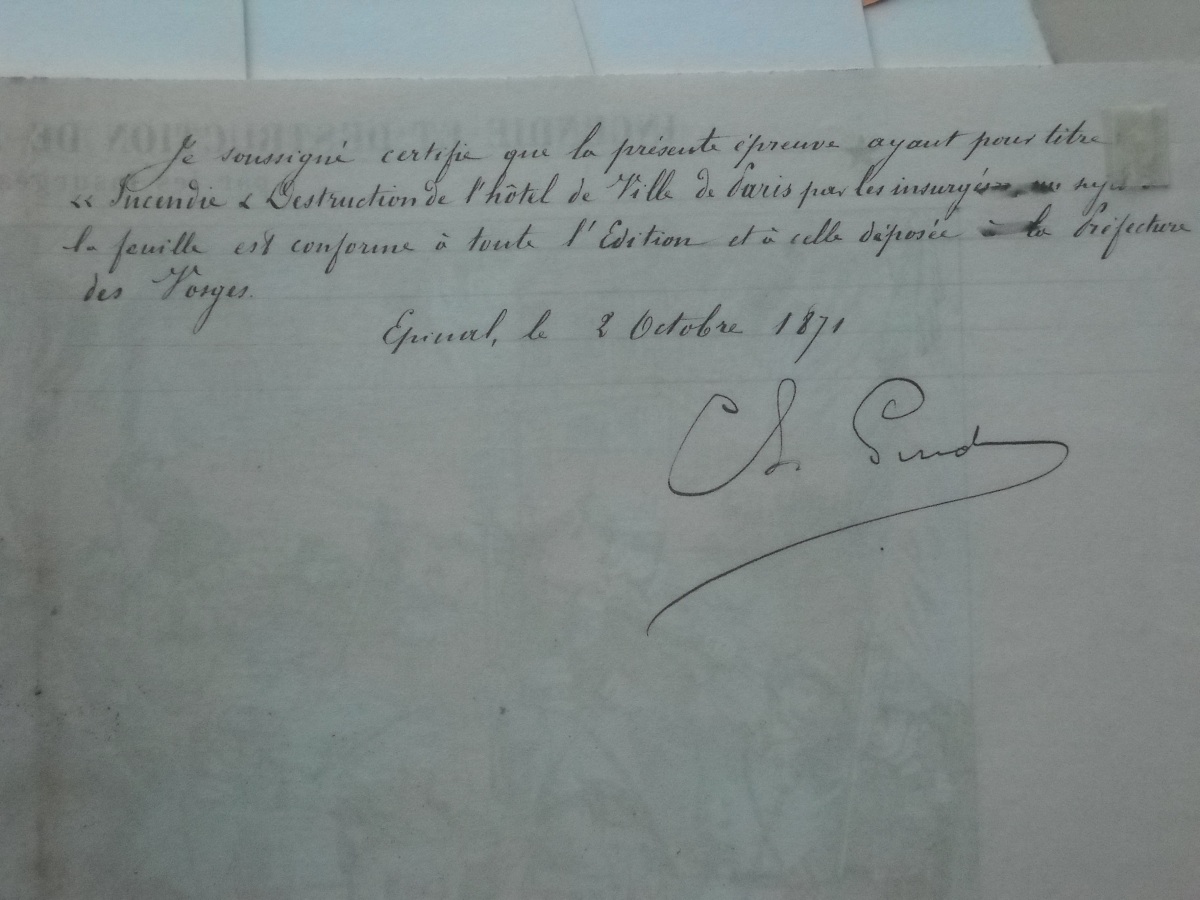 Je soussigné certifie que la présente épreuve ayant pour titre
« Incendie & Destruction de l'hôtel de Ville de Paris par les insurgés, un sujet
la feuille est conforme à toute l'Edition et à celle déposée à la Préfecture
des Vosges.
Epinal, le 2 Octobre 1871
Ch.
INCENDIE ET DESTRUCTION DE